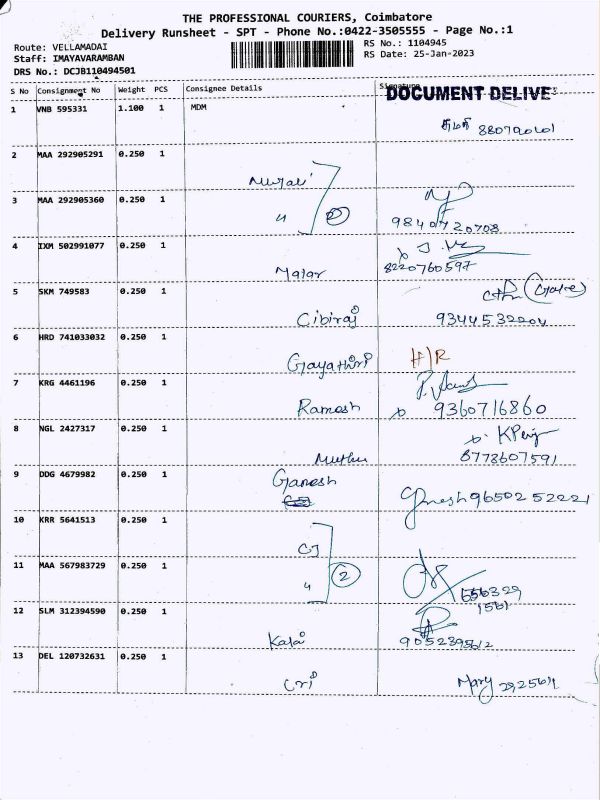 THE PROFESSIONAL COURIERS, Coimbatore
Delivery Runsheet - SPT - Phone No.:0422-3505555 - Page No.:1
Route: VELLAMADAI
RS No.: 1104945
Staff: IMAYAVARAMBAN
RS Date: 25-Jan-2023
DRS No.: DCJB110494501
S No Consignment No Weight PCS Consignee Details Signature
DOCUMENT DELIVE
1 VNB 595331 1.100 1 MDM
சுமதி
2 MAA 292905291 0.250 1
Murali
3 MAA 292905360 0.250 1
" 2
9840720708
4 IXM 502991077 0.250 1
Malar 8220760597
5 SKM 749583 0.250 1
Cibiraj
6 HRD 741033032 0.250 1
Gayathiri H/R
7 KRG 4461196 0.250 1
Ramesh 9360716860
8 NGL 2427317 0.250 1
Muthu 8778607591
9 DDG 4679982 0.250 1
Ganesh
Ganesh 9650252221
10 KRR 5641513 0.250 1
CJ
11 MAA 567983729 0.250 1
" 2
656329
1561
12 SLM 312394590 0.250 1
Kalai 9052395612
13 DEL 120732631 0.250 1
Cri Mary